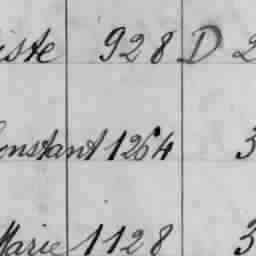 iste 928 D 2
onstant 1264 3
Marie 1128 3